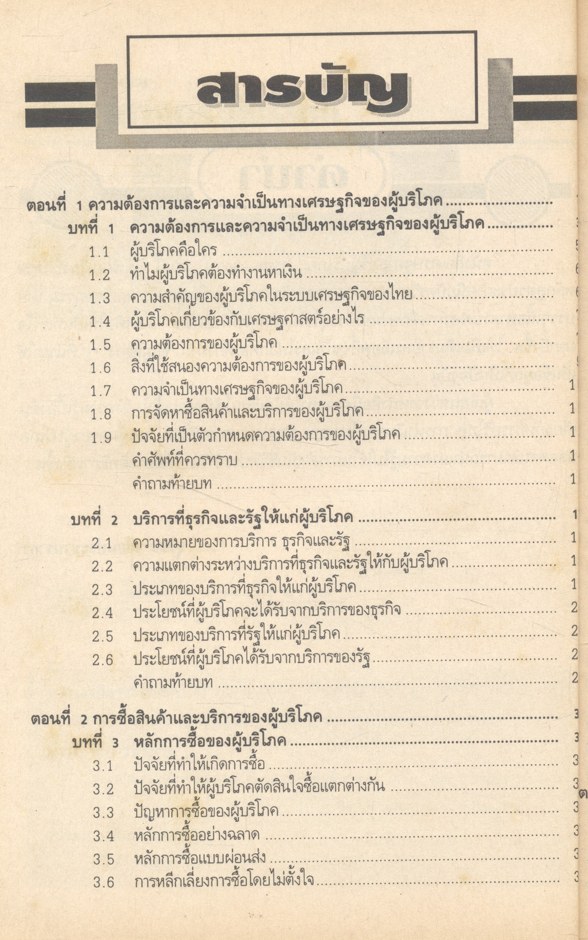 สารบัญ
ตอนที่ 1 ความต้องการและความจำเป็นทางเศรษฐกิจของผู้บริโภค
บทที่ 1 ความต้องการและความจำเป็นทางเศรษฐกิจของผู้บริโภค
1.1 ผู้บริโภคคือใคร
1.2 ทำไมผู้บริโภคต้องทำงานหาเงิน
1.3 ความสำคัญของผู้บริโภคในระบบเศรษฐกิจของไทย
1.4 ผู้บริโภคเกี่ยวข้องกับเศรษฐศาสตร์อย่างไร
1.5 ความต้องการของผู้บริโภค
1.6 สิ่งที่ใช้สนองความต้องการของผู้บริโภค
1.7 ความจำเป็นทางเศรษฐกิจของผู้บริโภค
1.8 การจัดหาซื้อสินค้าและบริการของผู้บริโภค
1.9 ปัจจัยที่เป็นตัวกำหนดความต้องการของผู้บริโภค
คำศัพท์ที่ควรทราบ
คำถามท้ายบท
บทที่ 2 บริการที่ธุรกิจและรัฐให้แก่ผู้บริโภค
2.1 ความหมายของการบริการ ธุรกิจและรัฐ
2.2 ความแตกต่างระหว่างบริการที่ธุรกิจและรัฐให้กับผู้บริโภค
2.3 ประเภทของบริการที่ธุรกิจให้แก่ผู้บริโภค
2.4 ประโยชน์ที่ผู้บริโภคจะได้รับจากบริการของธุรกิจ
2.5 ประเภทของบริการที่รัฐให้แก่ผู้บริโภค
2.6 ประโยชน์ที่ผู้บริโภคได้รับจากบริการของรัฐ
คำถามท้ายบท
ตอนที่ 2 การซื้อสินค้าและบริการของผู้บริโภค
บทที่ 3 หลักการซื้อของผู้บริโภค
3.1 ปัจจัยที่ทำให้เกิดการซื้อ
3.2 ปัจจัยที่ทำให้ผู้บริโภคตัดสินใจซื้อแตกต่างกัน
3.3 ปัญหาการซื้อของผู้บริโภค
3.4 หลักการซื้ออย่างฉลาด
3.5 หลักการซื้อแบบผ่อนส่ง
3.6 การหลีกเลี่ยงการซื้อโดยไม่ตั้งใจ